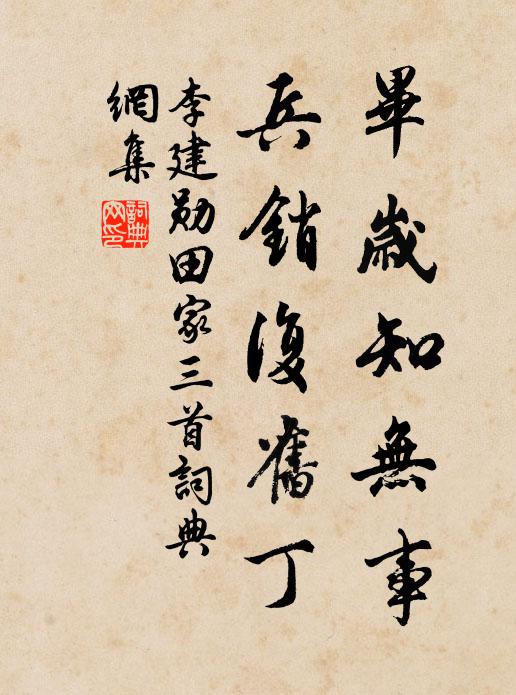 畢歲知無事
兵銷復舊丁
李建勛田家三首詞典
網集
詞典
网印